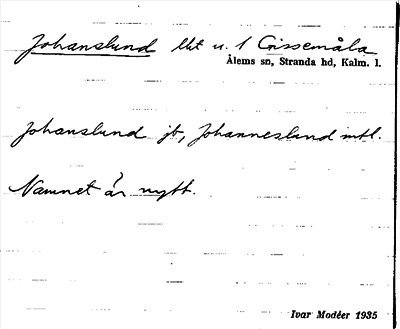 Johanslund lht u. 1 Crissemåla
Ålems sn, Stranda hd, Kalm. l.
Johanslund jb, Johanneslund mtl.
Namnet är nytt.
Ivar Modéer 1935